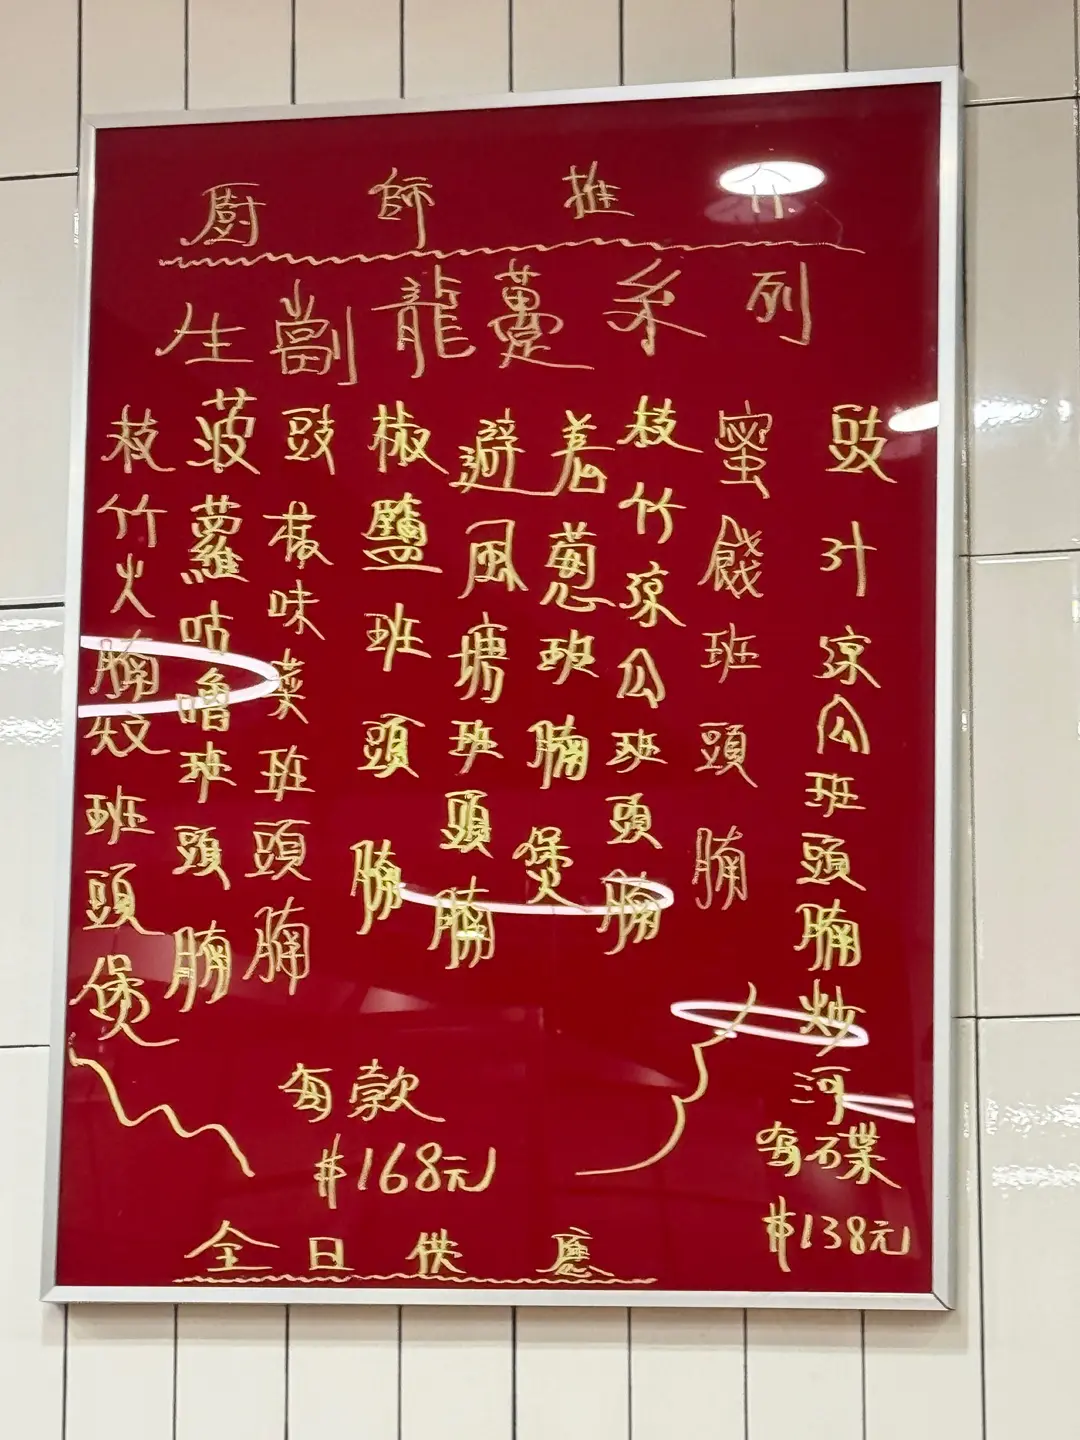 廚師推介
生劏龍躉系列
豉汁涼瓜班頭腩炒河
每碟
$138元
蜜餞班頭腩
枝竹涼瓜班頭腩
羌葱班腩煲
避風塘班頭腩
椒鹽班頭腩
豉椒味菜班頭腩
菠蘿咕嚕班頭腩
枝竹火腩炆班頭煲
每款
$168元
全日供應